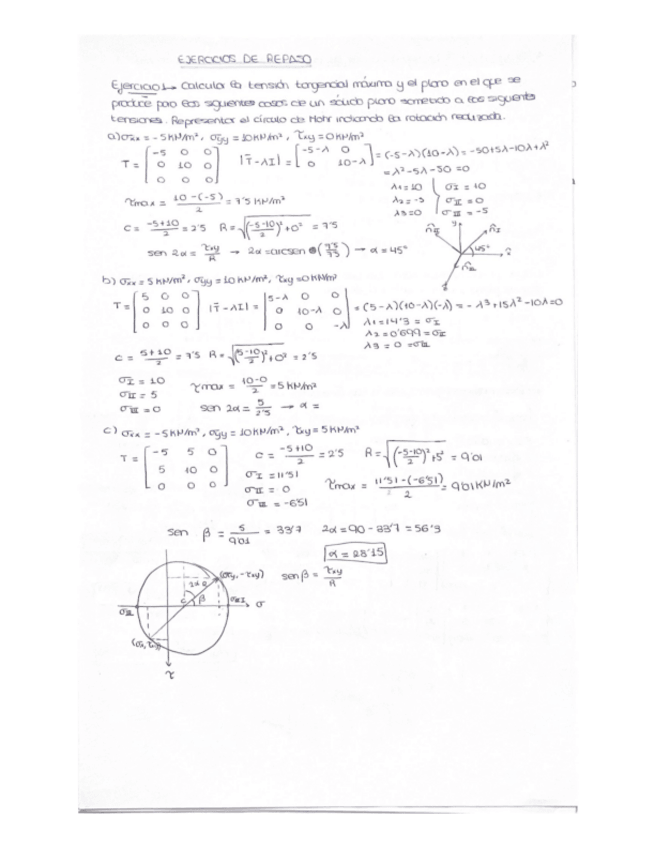 EJERCICIOS DE REPASO
Ejercicio 1 → Calcula la tensión tangencial máxima y el plano en el que se
produce para los siguientes casos de un sólido plano sometido a las siguientes
tensiones. Representar el círculo de Mohr indicando la rotación realizada.
a) σxx = -5 KN/m², σyy = 10KN/m², τxy = 0KN/m²
T = [-5 0 0; 0 10 0; 0 0 0] |T̄ - λI| = [-5-λ 0; 0 10-λ] = (-5-λ)(10-λ) = -50+5λ-10λ+λ²
= λ²-5λ-50 = 0
λ1 = 10 σI = 10
λ2 = -5 σII = 0
λ3 = 0 σIII = -5
τmax = 10-(-5)/2 = 7'5 KN/m²
C = -5+10/2 = 2'5 R = √((-5-10/2)² + 0²) = 7'5
sen 2α = τxy/R → 2α = arcsen (7'5/7'5) → α = 45°
y n̂II n̂I 45° n̂III
b) σxx = 5 KN/m², σyy = 10 KN/m², τxy = 0 KN/m²
T = [5 0 0; 0 10 0; 0 0 0] |T̄ - λI| = |5-λ 0 0; 0 10-λ 0; 0 0 -λ| = (5-λ)(10-λ)(-λ) = -λ³+15λ²-10λ=0
λ1 = 14'3 = σI
λ2 = 0'699 = σII
λ3 = 0 = σIII
C = 5+10/2 = 7'5 R = √((5-10/2)² + 0²) = 2'5
σI = 10
σII = 5 τmax = 10-0/2 = 5 KN/m²
σIII = 0 sen 2α = 5/2'5 → α =
c) σxx = -5 KN/m², σyy = 10 KN/m², τxy = 5 KN/m²
T = [-5 5 0; 5 10 0; 0 0 0] C = -5+10/2 = 2'5 R = √((-5-10/2)² + 5²) = 9'01
σI = 11'51
σII = 0 τmax = 11'51-(-6'51)/2 = 9'01 KN/m²
σIII = -6'51
sen β = 5/9'01 = 33'7 2α = 90 - 33'7 = 56'3
α = 28'15
(σy, -τxy) senβ = τxy/R
2α β C σIII σ
τ